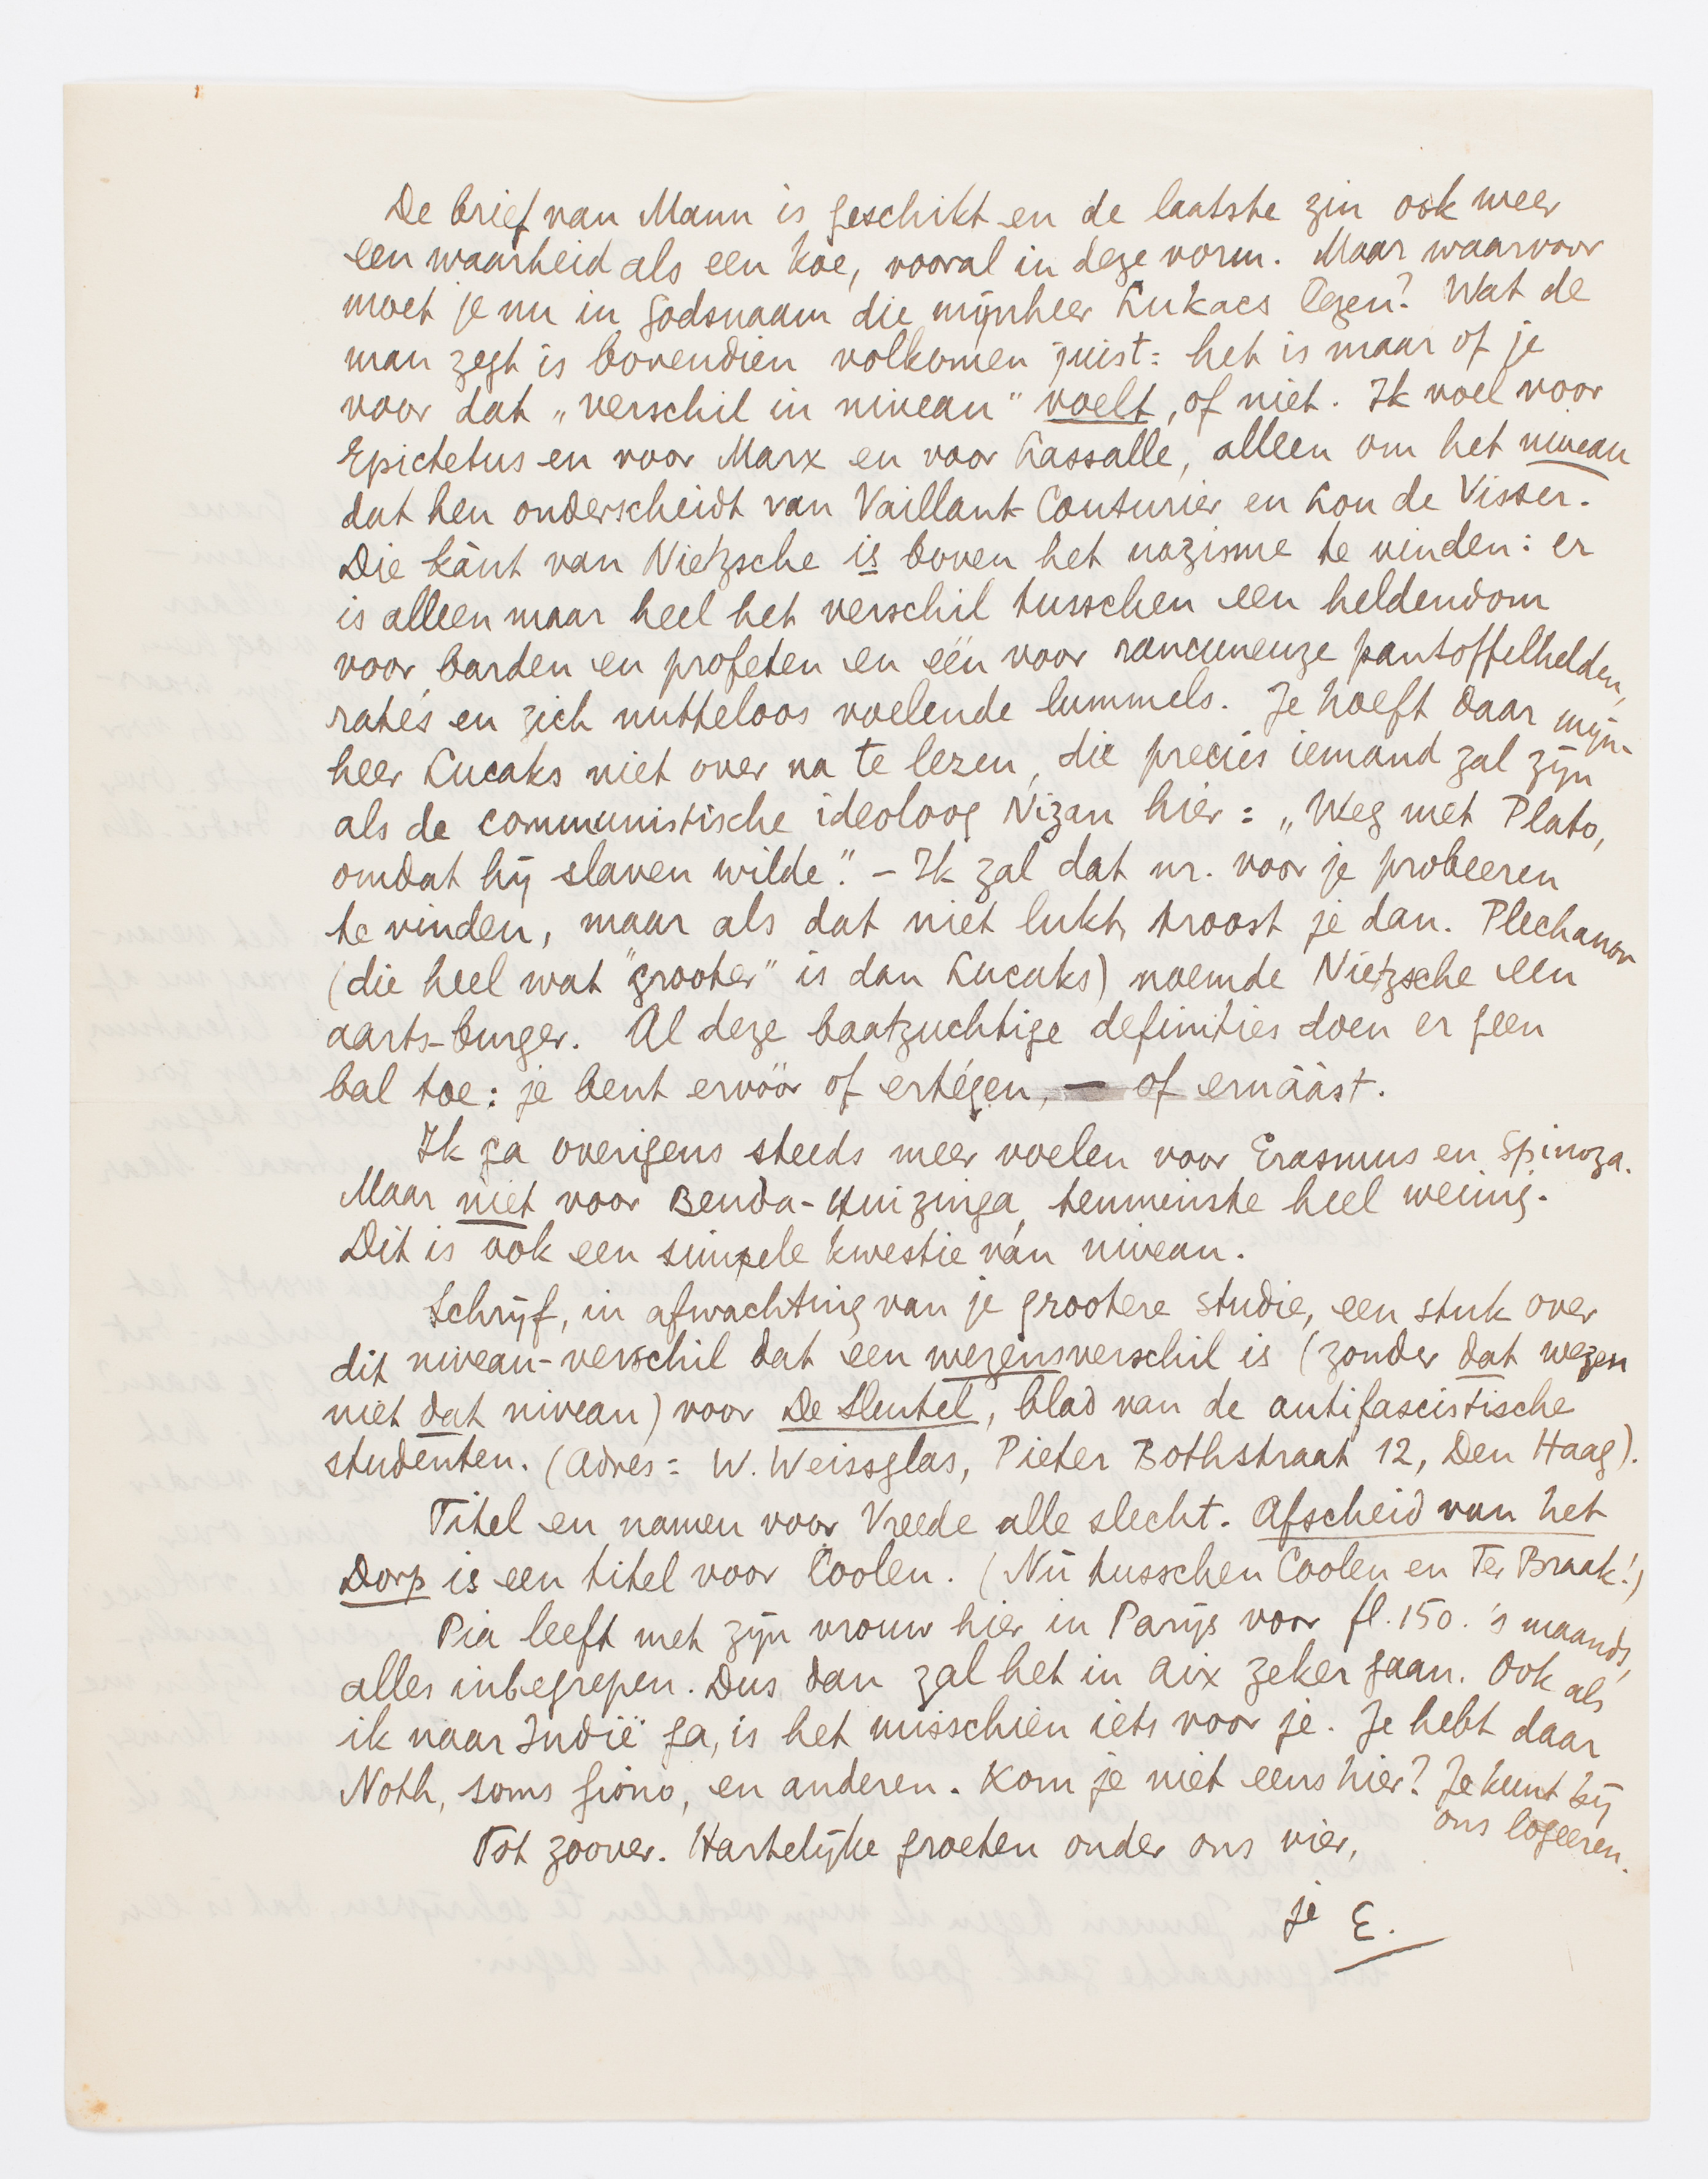 De brief van Mann is geschikt en de laatste zin ook weer
een waarheid als een koe, vooral in deze vorm. Maar waarvoor
moet je nu in godsnaam die mijnheer Lukacs lezen? Wat de
man zegt is bovendien volkomen juist: het is maar of je
voor dat „verschil in niveau" voelt, of niet. Ik voel voor
Epictetus en voor Marx en voor Lassalle, alleen om het niveau
dat hen onderscheidt van Vaillant-Couturier en Lou de Visser.
Die kànt van Nietzsche is boven het nazisme te vinden: er
is alleen maar heel het verschil tusschen een heldendom
voor barden en profeten en één voor rancuneuze pantoffelhelden,
ratés en zich nutteloos voelende lummels. Je hoeft daar mijn-
heer Lucaks niet over na te lezen, die precies iemand zal zijn
als de communistische ideoloog Nizan hier: „Weg met Plato,
omdat hij slaven wilde". – Ik zal dat nr. voor je probeeren
te vinden, maar als dat niet lukt, troost je dan. Plechanov
(die heel wat "grooter" is dan Lucaks) noemde Nietzsche een
aarts-burger. Al deze baatzuchtige definities doen er geen
bal toe: je bent ervóór of ertégen, — of ernáást.
Ik ga overigens steeds meer voelen voor Erasmus en Spinoza.
Maar niet voor Benda-Huizinga, tenminste heel weinig.
Dit is ook een simpele kwestie ván niveau.
Schrijf, in afwachting van je grootere studie, een stuk over
dit niveau-verschil dat een wezensverschil is (zonder dat wezen
niet dat niveau) voor De Sleutel, blad van de antifascistische
studenten. (Adres: W. Weissglas, Pieter Bothstraat 12, Den Haag).
Titel en namen voor Vreede alle slecht. Afscheid van het
Dorp is een titel voor Coolen. (Nú tusschen Coolen en Ter Braak!)
Pia leeft met zijn vrouw hier in Parijs voor fl. 150. 's maands,
alles inbegrepen. Dus dan zal het in Aix zeker gaan. Ook als
ik naar Indië ga, is het misschien iets voor je. Je hebt daar
Noth, soms Giono, en anderen. Kom je niet eens hier? Je kunt bij
ons logeeren.
Tot zoover. Hartelijke groeten onder ons vier,
je E.